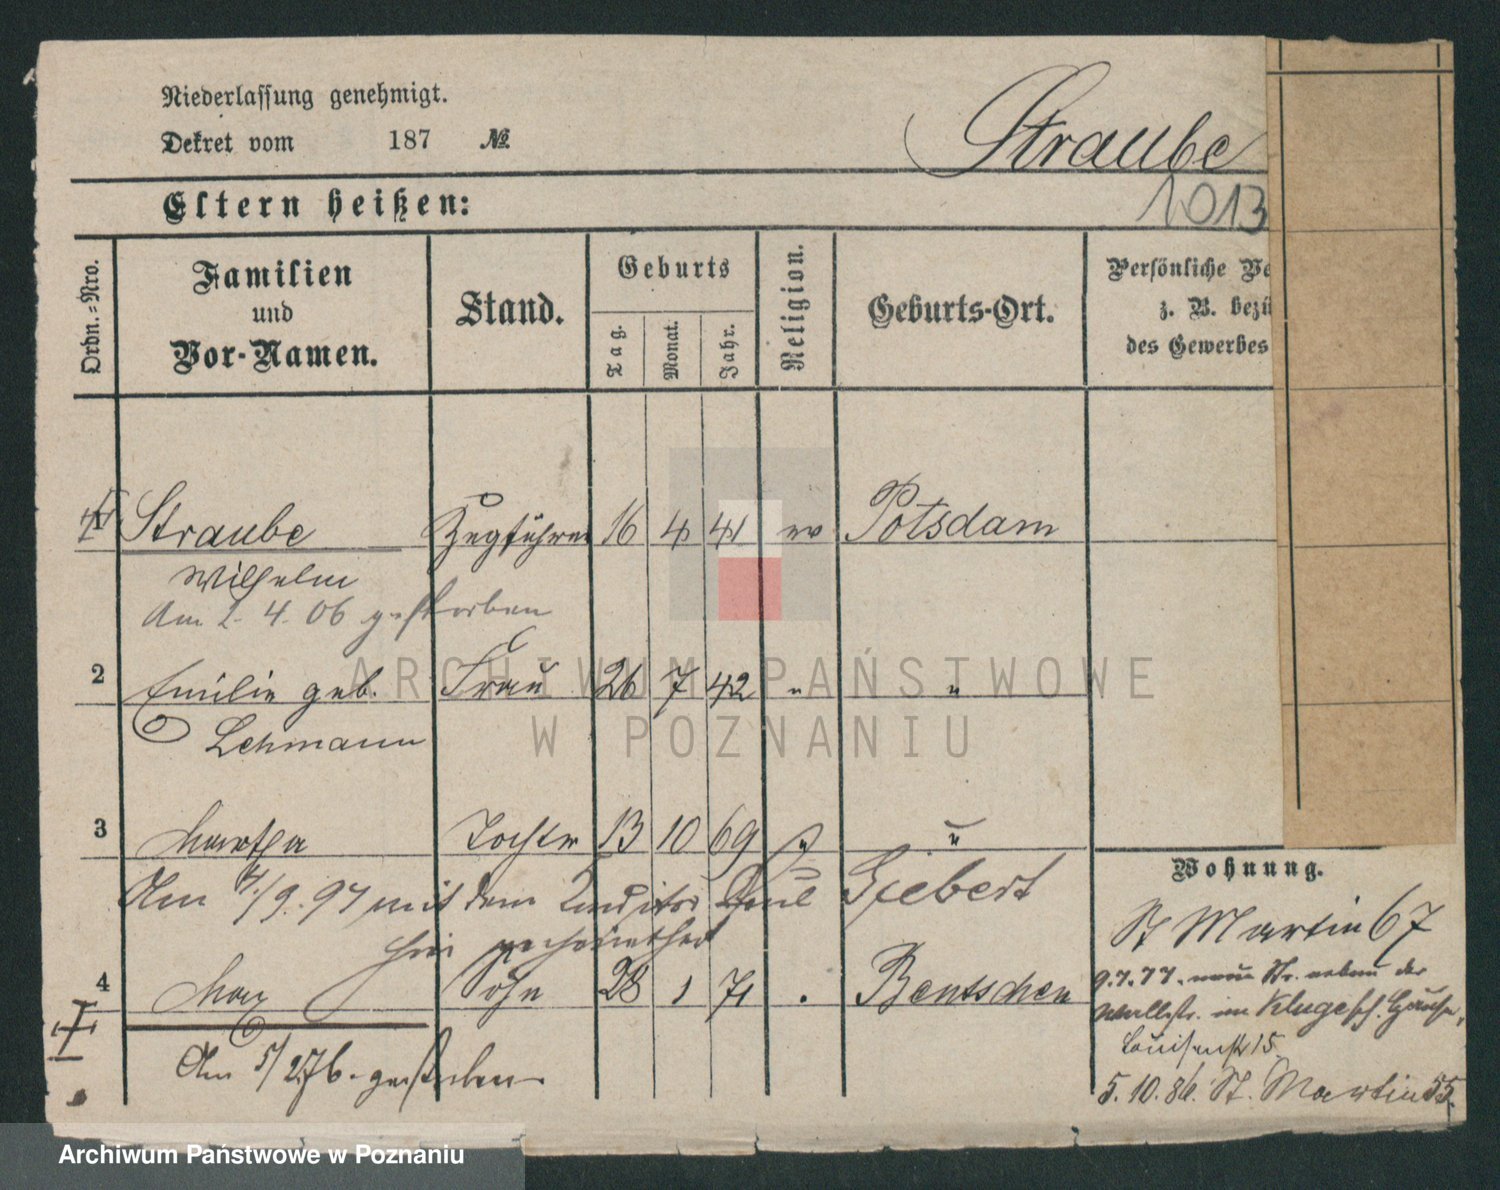 Niederlassung genehmigt.
Dekret vom 187 №
Straube
1013
Eltern heißen:
Ordn.=Nro.
Familien und Vor-Namen.
Stand.
Geburts
Tag.
Monat.
Jahr.
Religion.
Geburts-Ort.
Persönliche
z. B.
des Gewerbes
1 Straube Zugführer 16 4 41 ev Potsdam
Wilhelm
Am 2. 4. 06 gestorben
2 Emilie geb. Frau 26 7 42 " "
Lehmann
3 Martha Tochter 13 10 69 " "
Am 4/9. 97 mit dem Paul Giebert
hier
4 Max Sohn 28 1 71 . Bentschen
Am 5/2 76. gestorben
Wohnung.
St Martin 67
9.7.77. neue Str. neben der
Wallstr. im Klugesch. Hause,
Louisenstr 15.
5. 10. 86. St. Martin 55.
ARCHIWUM PAŃSTWOWE
W POZNANIU
Archiwum Państwowe w Poznaniu